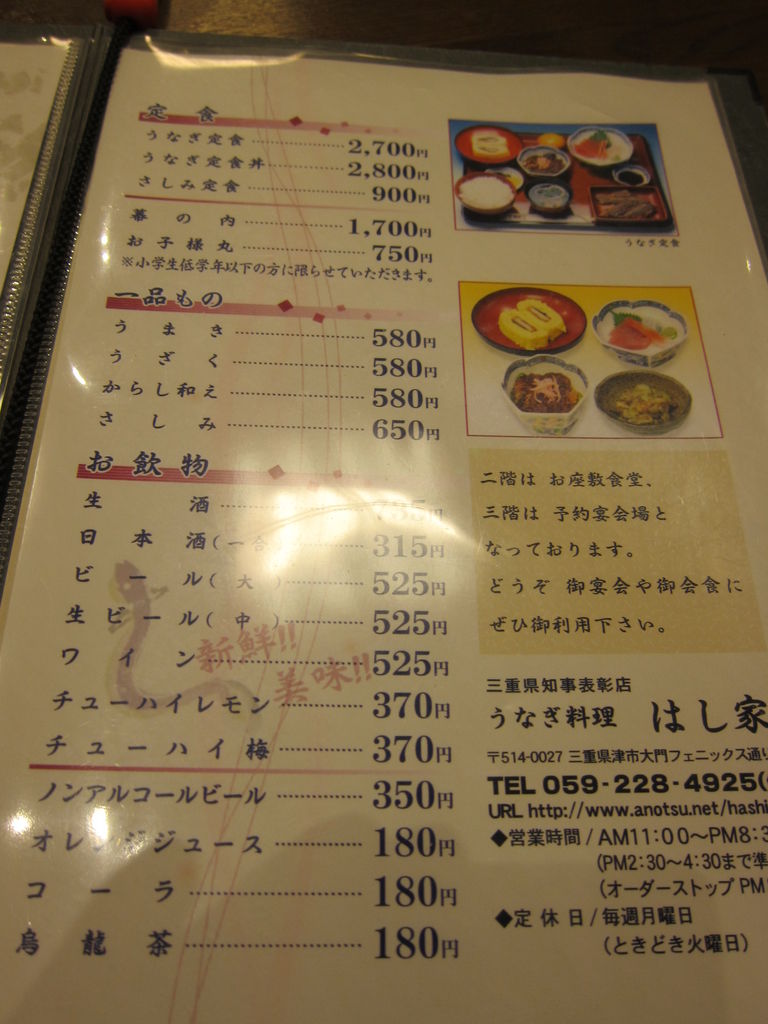 定食
うなぎ定食 2,700円
うなぎ定食丼 2,800円
さしみ定食 900円
幕の内 1,700円
お子様丸 750円
※小学生低学年以下の方に限らせていただきます。
一品もの
うまき 580円
うざく 580円
からし和え 580円
さしみ 650円
お飲物
生酒 735円
日本酒(一合) 315円
ビール(大) 525円
生ビール(中) 525円
ワイン 525円
チューハイレモン 370円
チューハイ梅 370円
新鮮!!
美味!!
ノンアルコールビール 350円
オレンジジュース 180円
コーラ 180円
烏龍茶 180円
うなぎ定食
二階は お座敷食堂、
三階は 予約宴会場と
なっております。
どうぞ 御宴会や御会食に
ぜひ御利用下さい。
三重県知事表彰店
うなぎ料理 はし家
〒514-0027 三重県津市大門フェニックス通り
TEL 059-228-4925(
URL http://www.anotsu.net/hashi
◆営業時間/AM11:00〜PM8:3
(PM2:30〜4:30まで準
(オーダーストップ PM
◆定休日/毎週月曜日
(ときどき火曜日)